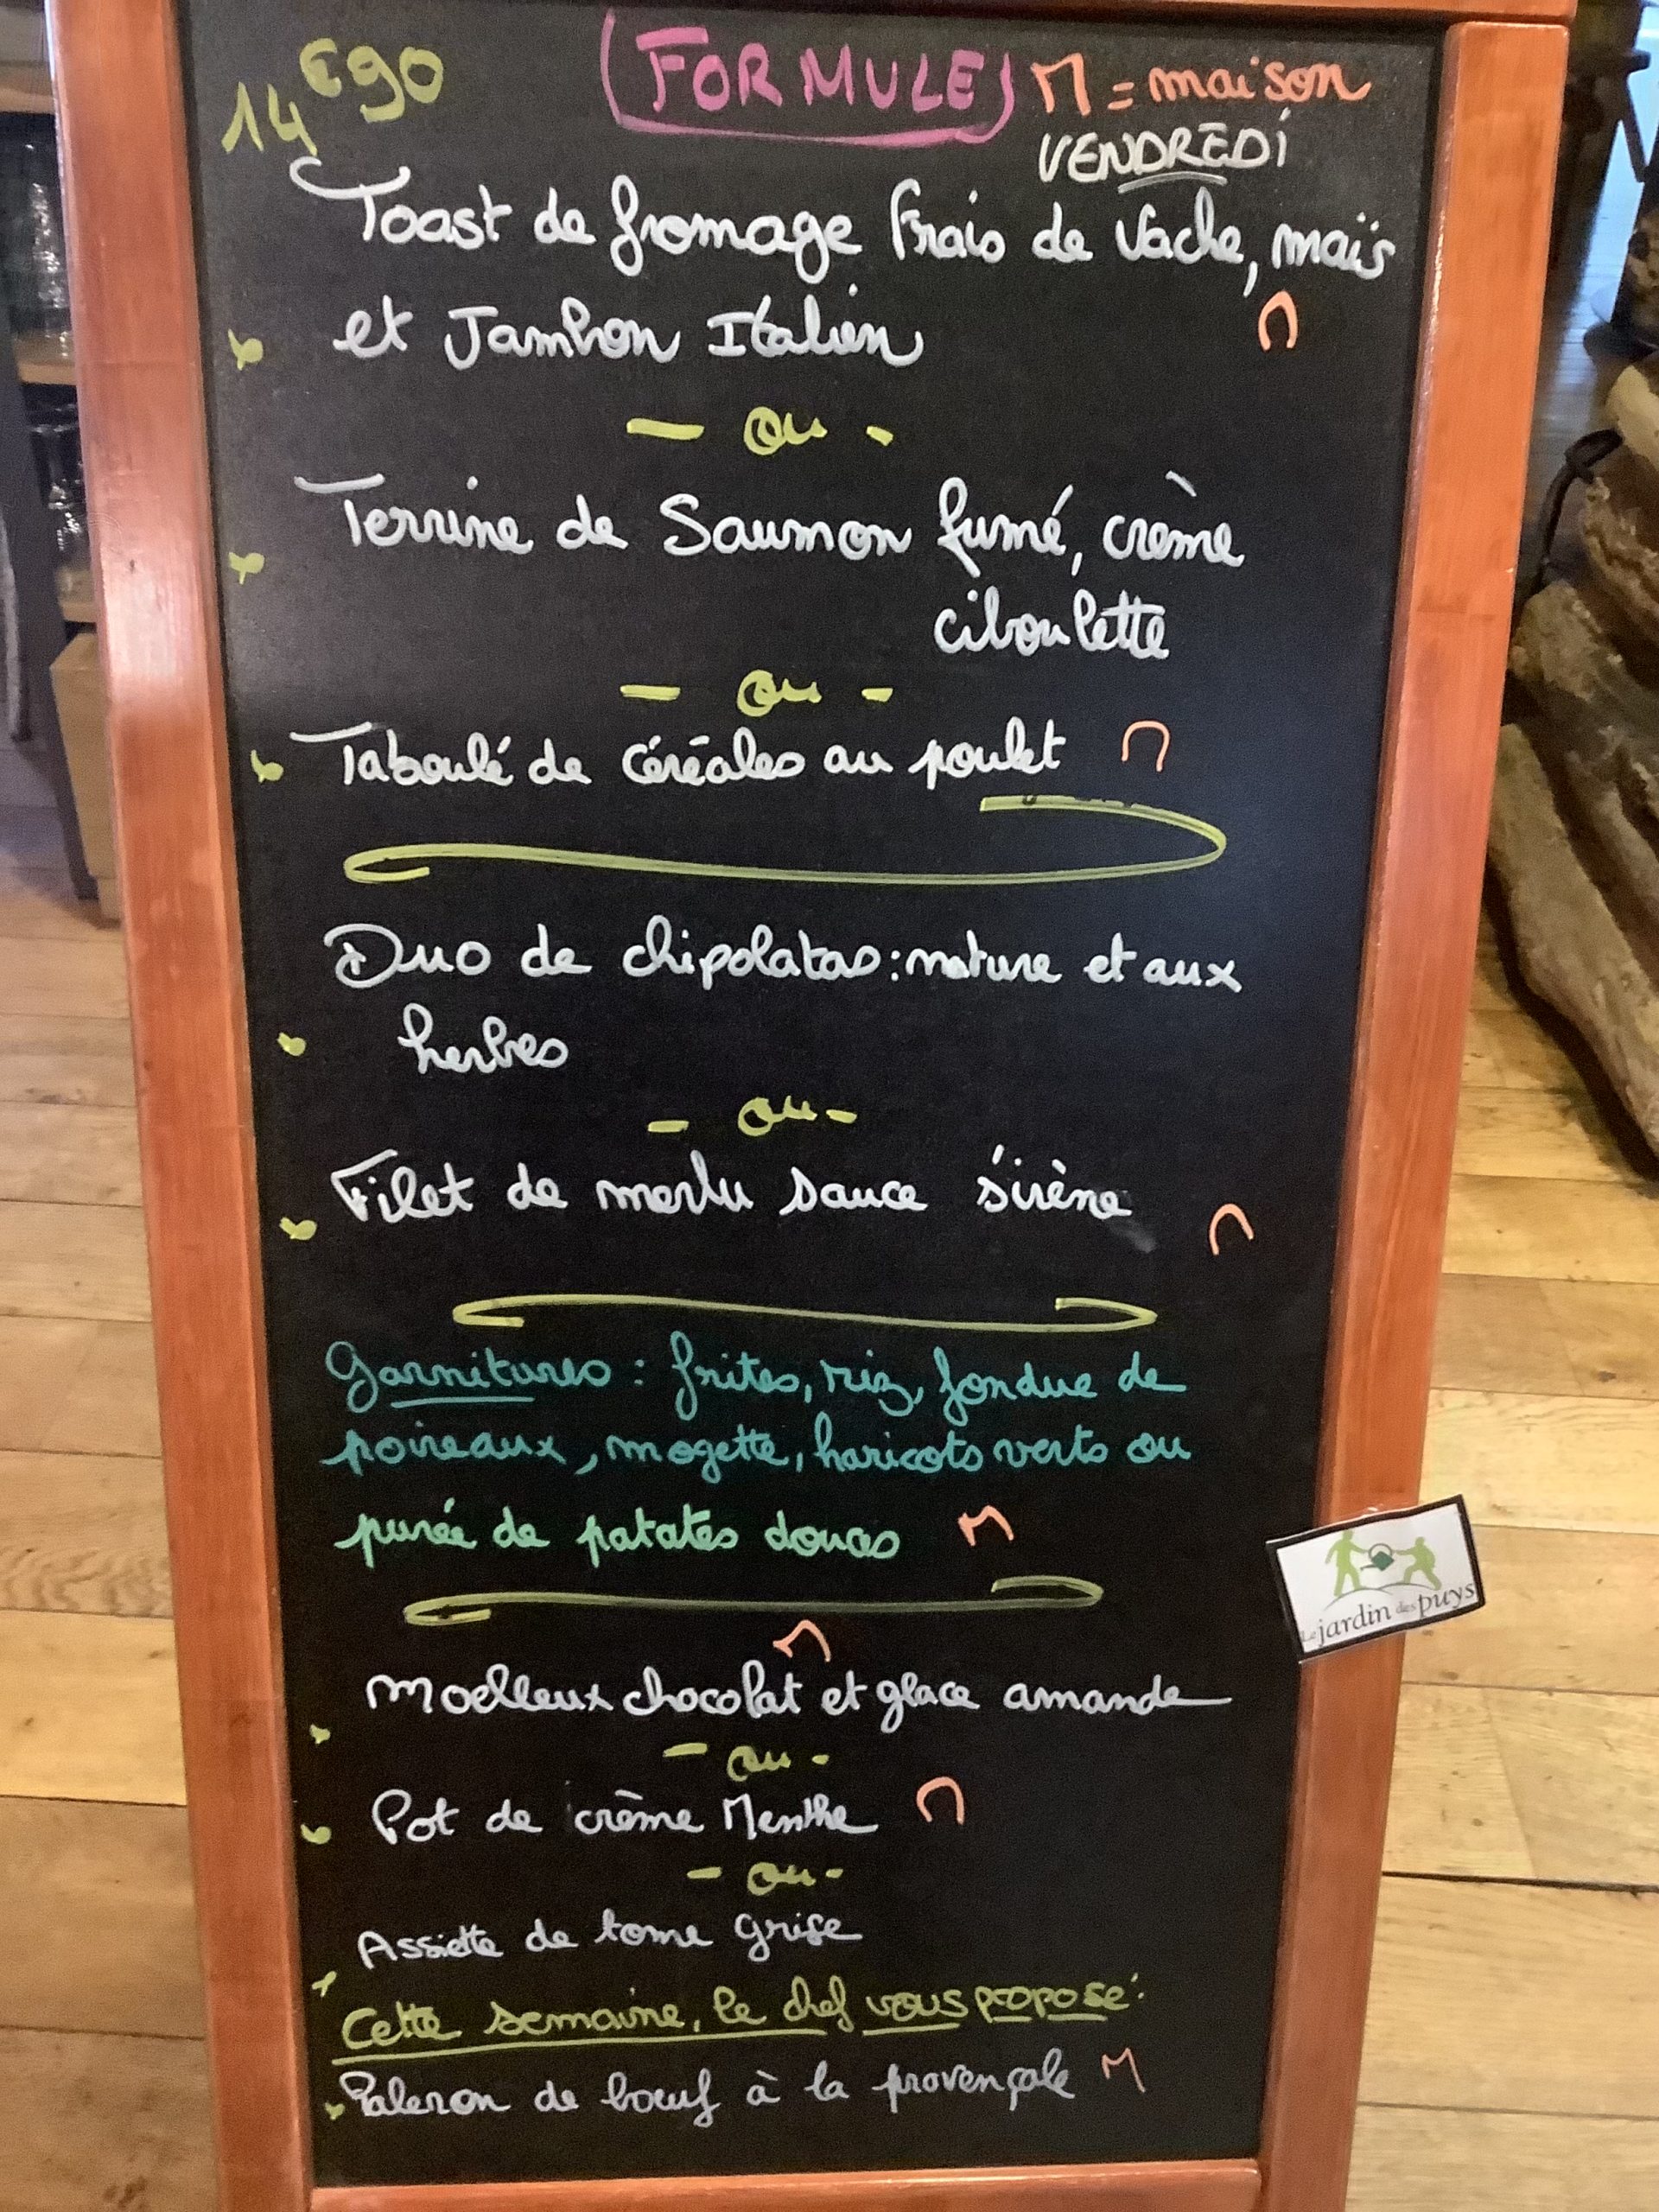 14€90 (FORMULE) M = maison
VENDREDI
Toast de fromage frais de vache, maïs
et Jambon Italien M
- ou -
Terrine de Saumon fumé, crème
ciboulette
- ou -
Taboulé de céréales au poulet M
Duo de chipolatas : nature et aux
herbes
- ou -
Filet de merlu sauce sirène M
Garnitures : frites, riz, fondue de
poireaux, mogette, haricots verts ou
purée de patates douces M
M
Moelleux chocolat et glace amande
- ou -
Pot de crème Menthe M
- ou -
Assiette de tome grise
Cette semaine, le chef vous propose :
Paleron de boeuf à la provençale M
Le jardin des puys